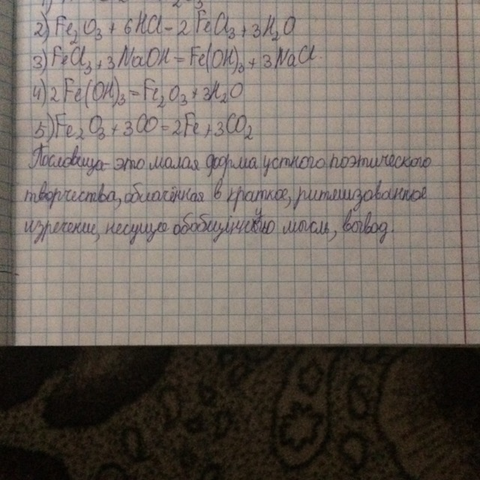 2) Fe₂O₃ + 6HCl - 2FeCl₃ + 3H₂O
3) FeCl₃ + 3NaOH = Fe(OH)₃ + 3NaCl.
4) 2Fe(OH)₃ = Fe₂O₃ + 3H₂O
5) Fe₂O₃ + 3CO = 2Fe + 3CO₂
Пословица - это малая форма устного поэтического
творчества, облачённая в краткое, ритмизованное
изречение, несущее обобщённую мысль, вывод.